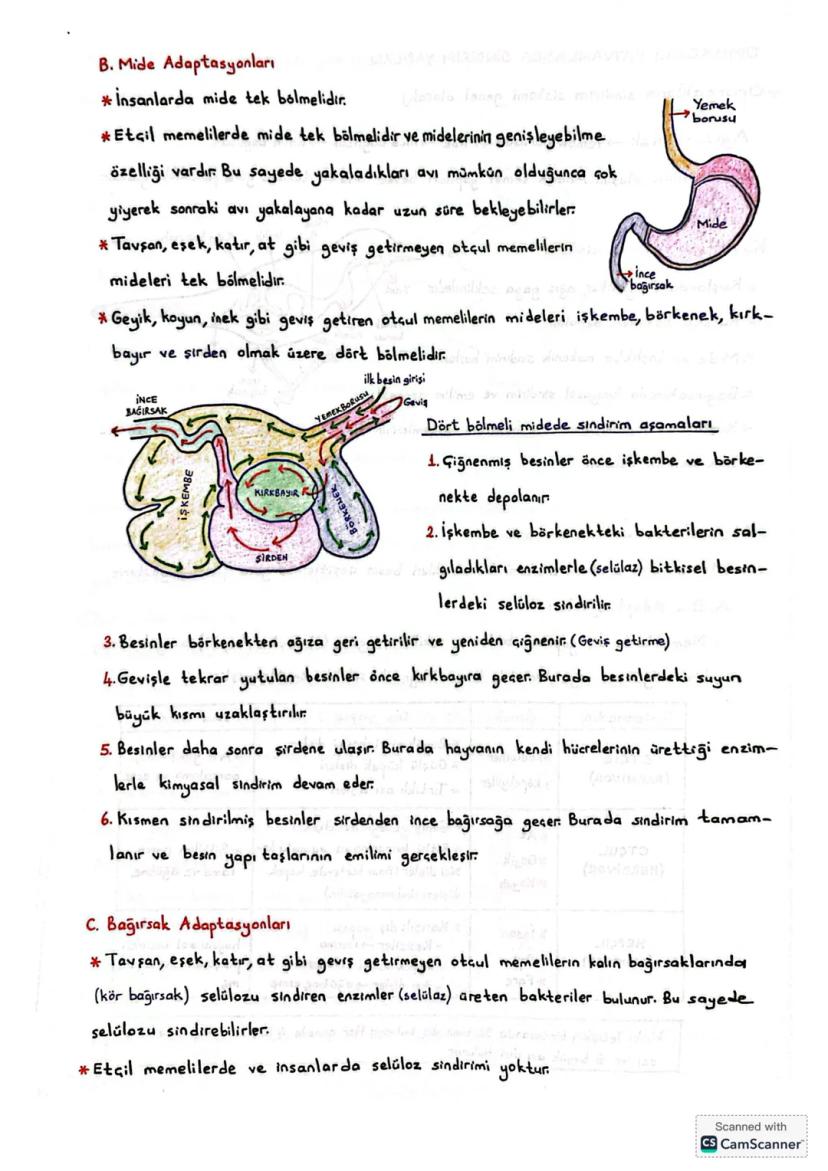 B. Mide Adaptasyonları
* İnsanlarda mide tek bölmelidir.
* Etçil memelilerde mide tek bölmelidir ve midelerinin genişleyebilme
özelliği vardır. Bu sayede yakaladıkları avı mümkün olduğunca çok
yiyerek sonraki avı yakalayana kadar uzun süre bekleyebilirler.
* Tavşan, eşek, katır, at gibi geviş getirmeyen otçul memelilerin
mideleri tek bölmelidir.
Yemek
borusu
Mide
İnce
bağırsak
* Geyik, koyun, inek gibi geviş getiren otçul memelilerin mideleri işkembe, börkenek, kırk-
bayır ve şirden olmak üzere dört bölmelidir.
ilk besin girişi
Geviş
YEMEK BORUSU
İNCE
BAĞIRSAK
İŞKEMBE
KIRKBAYIR
BÖRKENEK
ŞİRDEN
Dört bölmeli midede sindirim aşamaları
1. Çiğnenmiş besinler önce işkembe ve börke-
nekte depolanır.
2. İşkembe ve börkenekteki bakterilerin sal-
gıladıkları enzimlerle (selülaz) bitkisel besin-
lerdeki selüloz sindirilir.
3. Besinler börkenekten ağıza geri getirilir ve yeniden çiğnenir. (Geviş getirme)
4. Gevişle tekrar yutulan besinler önce kırkbayıra geçer. Burada besinlerdeki suyun
büyük kısmı uzaklaştırılır.
5. Besinler daha sonra şirdene ulaşır. Burada hayvanın kendi hücrelerinin ürettiği enzim-
lerle kimyasal sindirim devam eder.
6. Kısmen sindirilmiş besinler şirdenden ince bağırsağa geçer. Burada sindirim tamam-
lanır ve besin yapı taşlarının emilimi gerçekleşir.
C. Bağırsak Adaptasyonları
* Tavşan, eşek, katır, at gibi geviş getirmeyen otçul memelilerin kalın bağırsaklarında
(kör bağırsak) selülozu sindiren enzimler (selülaz) üreten bakteriler bulunur. Bu sayede
selülozu sindirebilirler.
* Etçil memelilerde ve insanlarda selüloz sindirimi yoktur.
Scanned with
CS CamScanner